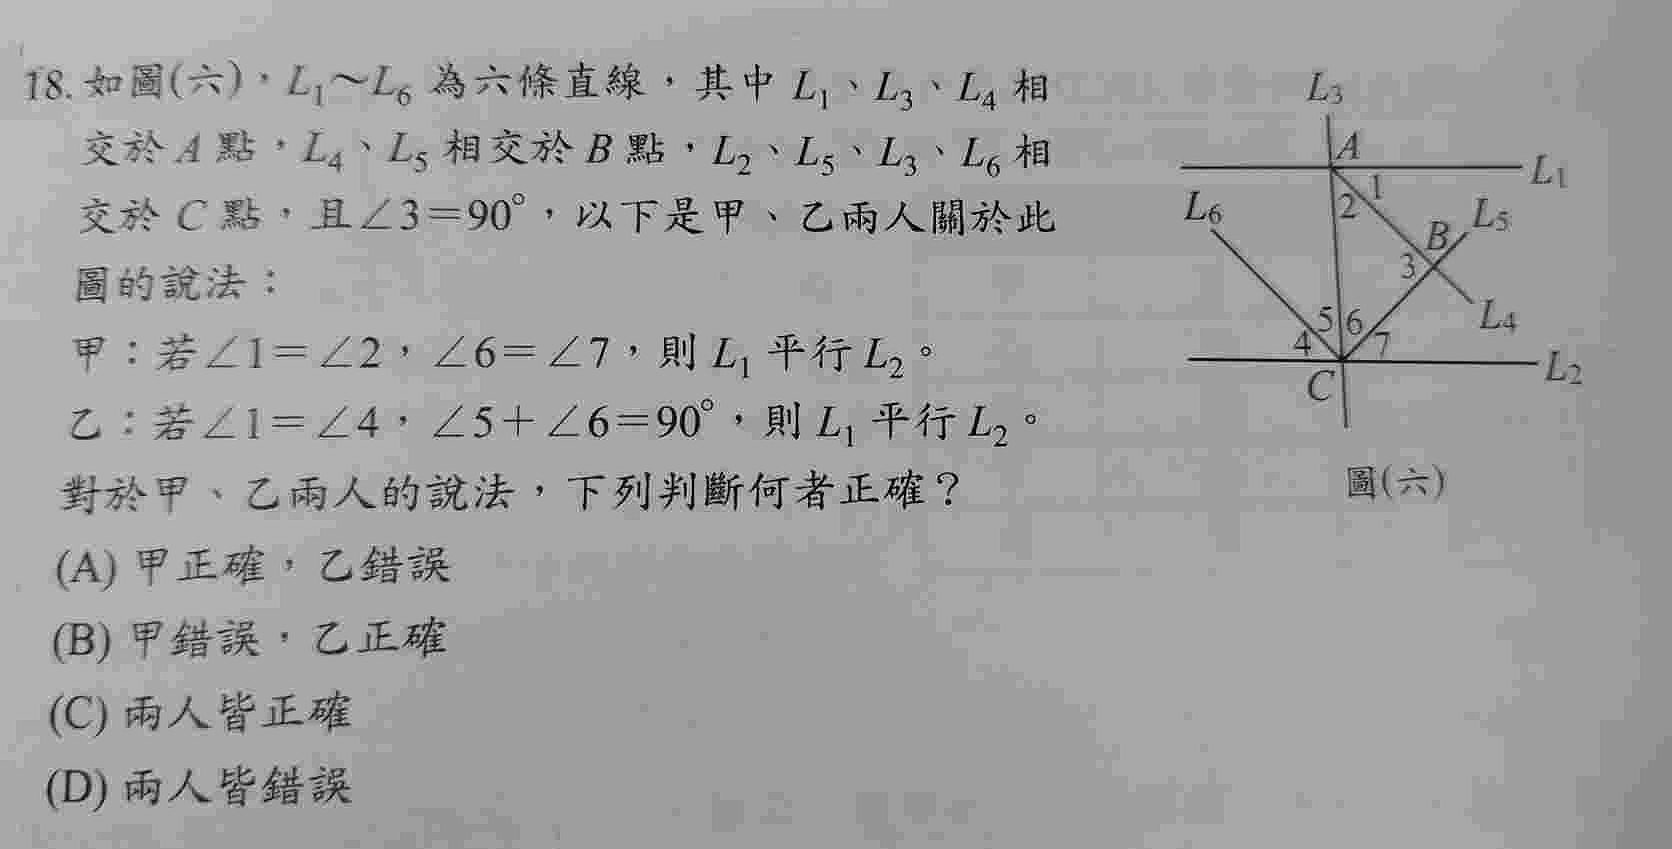 18. 如圖(六),L₁～L₆ 為六條直線,其中 L₁、L₃、L₄ 相
交於 A 點,L₄、L₅ 相交於 B 點,L₂、L₅、L₃、L₆ 相
交於 C 點,且∠3=90°,以下是甲、乙兩人關於此
圖的說法:
甲:若∠1=∠2,∠6=∠7,則 L₁ 平行 L₂。
乙:若∠1=∠4,∠5+∠6=90°,則 L₁ 平行 L₂。
對於甲、乙兩人的說法,下列判斷何者正確?
(A) 甲正確,乙錯誤
(B) 甲錯誤,乙正確
(C) 兩人皆正確
(D) 兩人皆錯誤
L₃
A
L₁
1
2
L₆
L₅
B
3
L₄
5 6
4 7
L₂
C
圖(六)